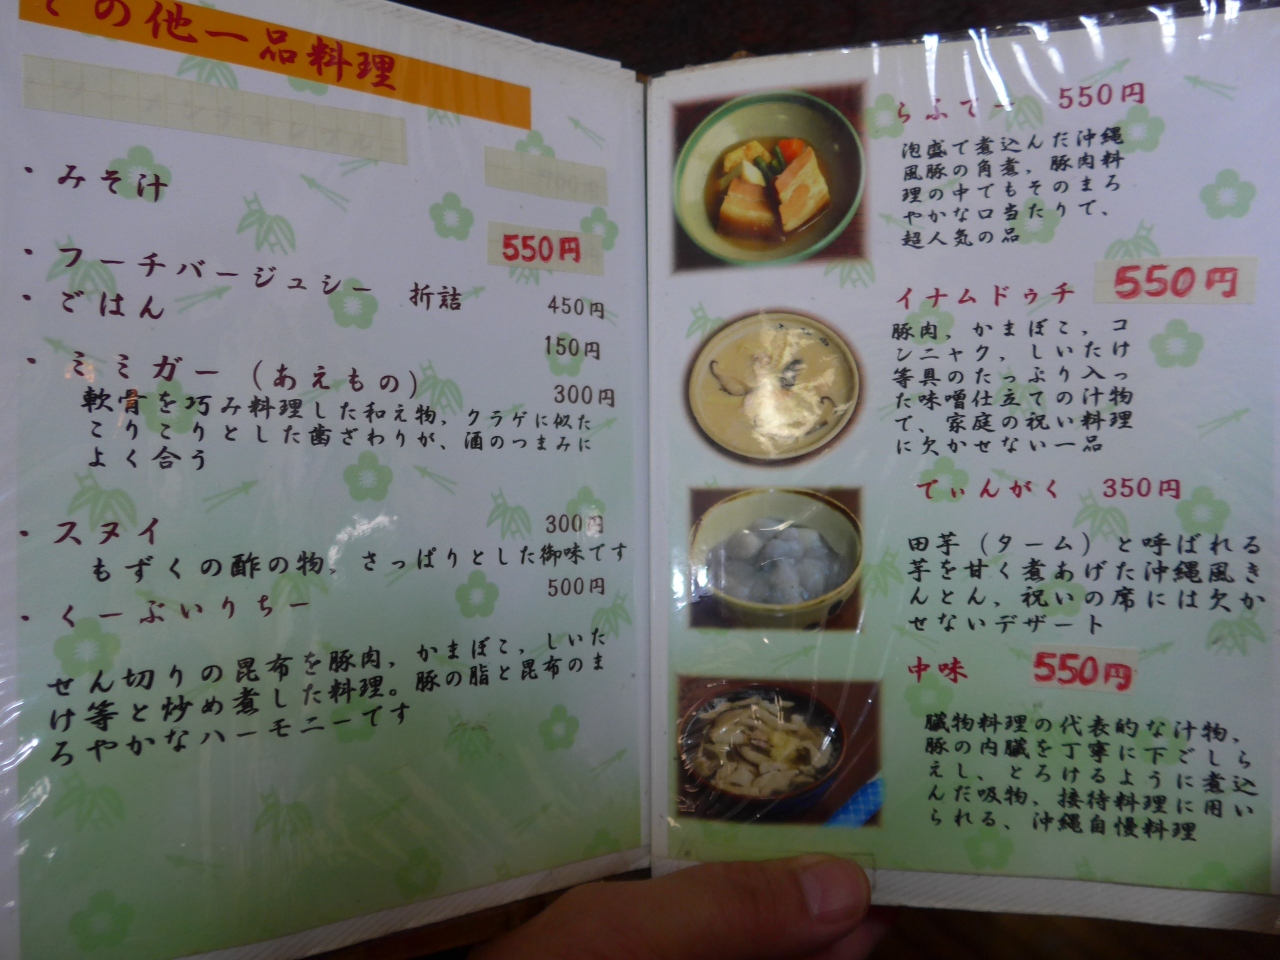 その他一品料理
・みそ汁
550円
・フーチバージュシー 折詰 450円
・ごはん 150円
・ミミガー(あえもの) 300円
軟骨を巧み料理した和え物、クラゲに似た
こりこりとした歯ざわりが、酒のつまみに
よく合う
・スヌイ 300円
もずくの酢の物、さっぱりとした御味です
・くーぶいりちー 500円
せん切りの昆布を豚肉、かまぼこ、しいた
け等と炒め煮した料理。豚の脂と昆布のま
ろやかなハーモニーです
らふてー 550円
泡盛で煮込んだ沖縄
風豚の角煮、豚肉料
理の中でもそのまろ
やかな口当たりで、
超人気の品
イナムドゥチ 550円
豚肉、かまぼこ、コ
ンニャク、しいたけ
等具のたっぷり入っ
た味噌仕立ての汁物
で、家庭の祝い料理
に欠かせない一品
てぃんがく 350円
田芋(ターム)と呼ばれる
芋を甘く煮あげた沖縄風き
んとん、祝いの席には欠か
せないデザート
中味 550円
臓物料理の代表的な汁物、
豚の内臓を丁寧に下ごしら
えし、とろけるように煮込
んだ吸物、接待料理に用い
られる、沖縄自慢料理